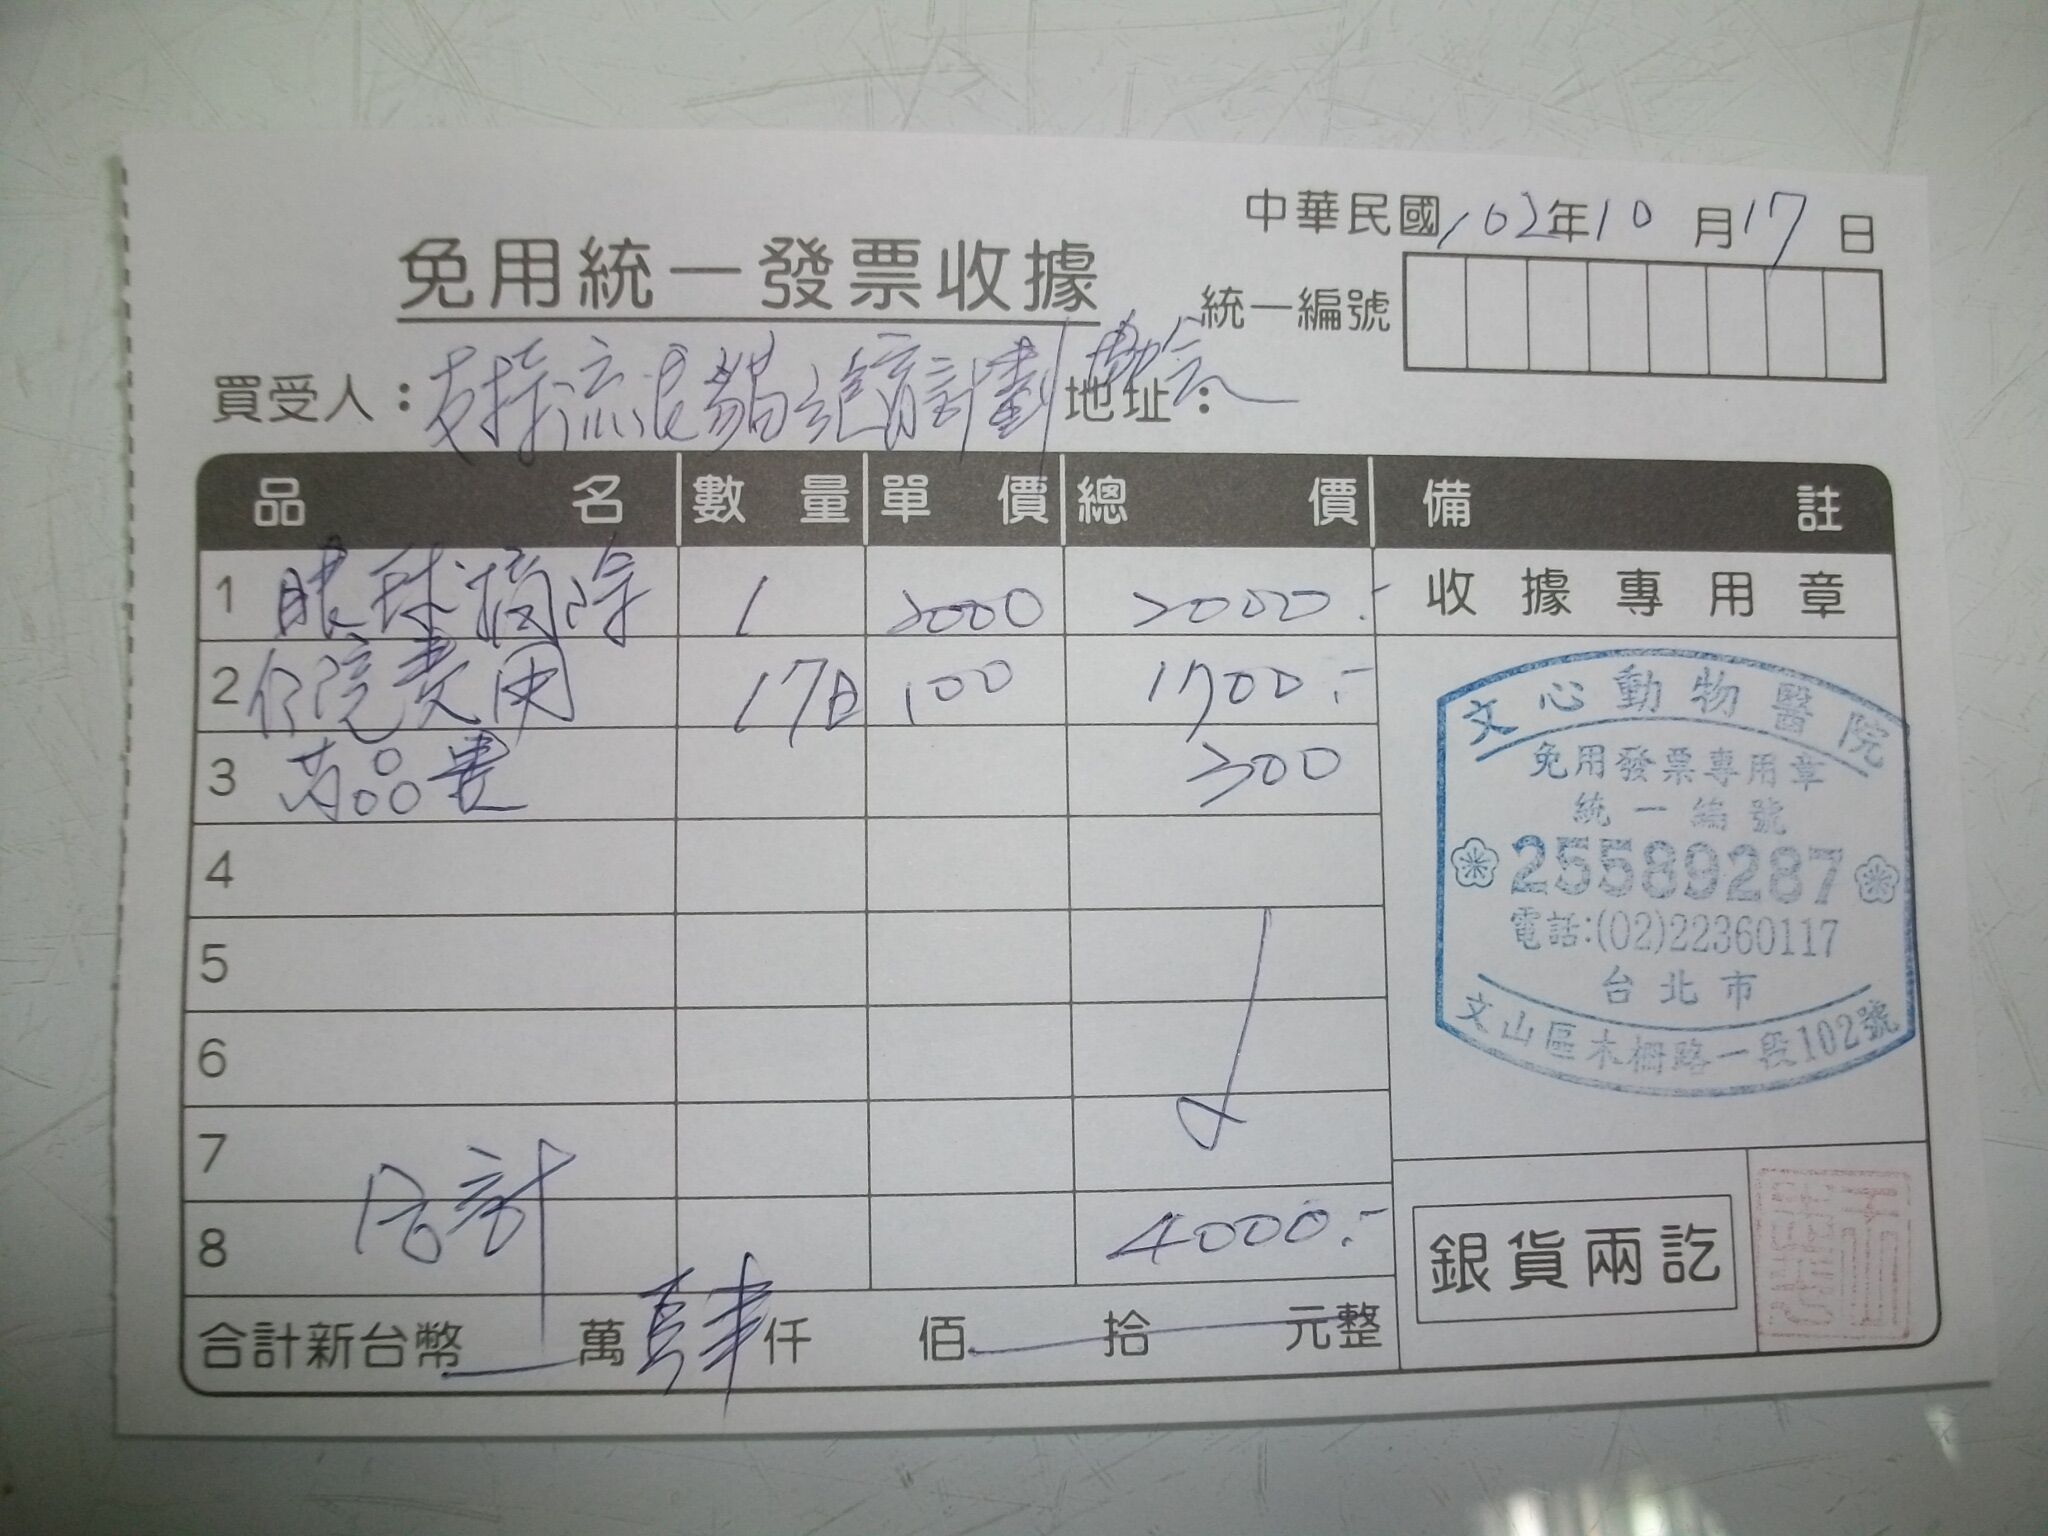 中華民國102年10月17日
免用統一發票收據
統一編號
買受人：支持流浪貓絕育計劃 地址：
品名 數量 單價 總價 備註
1 眼球摘除 1 2000 2000.-
收據專用章
2 住院費用 17日 100 1700.-
3 藥品費 300
4
5
6
7
8 合計 4000.-
合計新台幣 萬 肆仟 佰 拾 元整
文心動物醫院
免用發票專用章
統一編號
25589287
電話:(02)22360117
台北市
文山區木柵路一段102號
銀貨兩訖